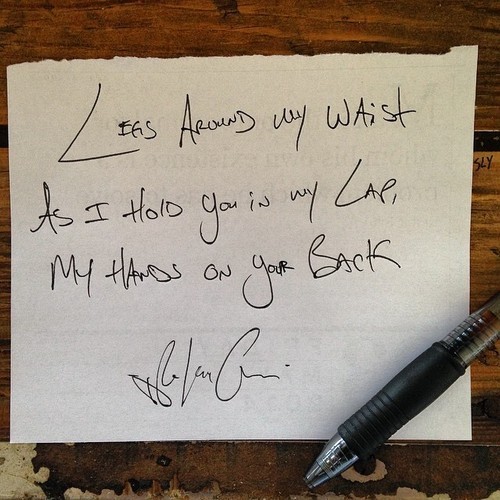 Legs Around my Waist
As I Hold you in my Lap,
My Hands on your Back